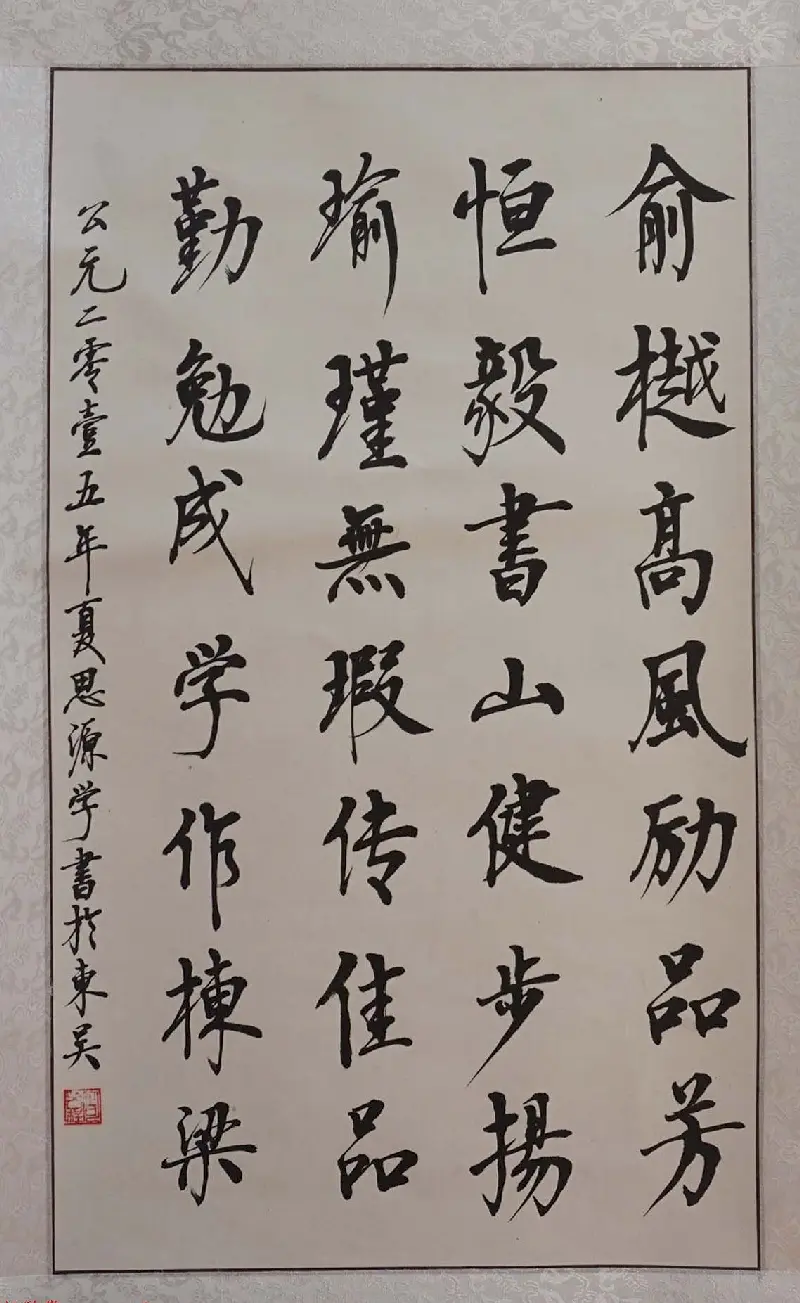 俞樾高風励品芳
恒毅書山健步揚
瑜瑾無瑕传佳品
勤勉成学作棟梁
公元二零壹五年夏思源学書於東吴